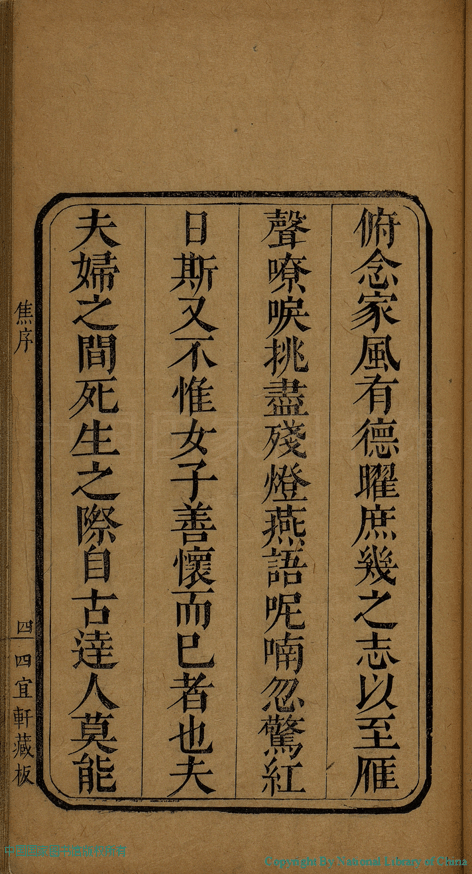 俯念家風有德曜庶幾之志以至雁
聲嘹唳挑盡殘燈燕語呢喃忽驚紅
日斯又不惟女子善懷而已者也夫
夫婦之間死生之際自古達人莫能
焦序
四
四宜軒藏板
Copyright by National Library of China